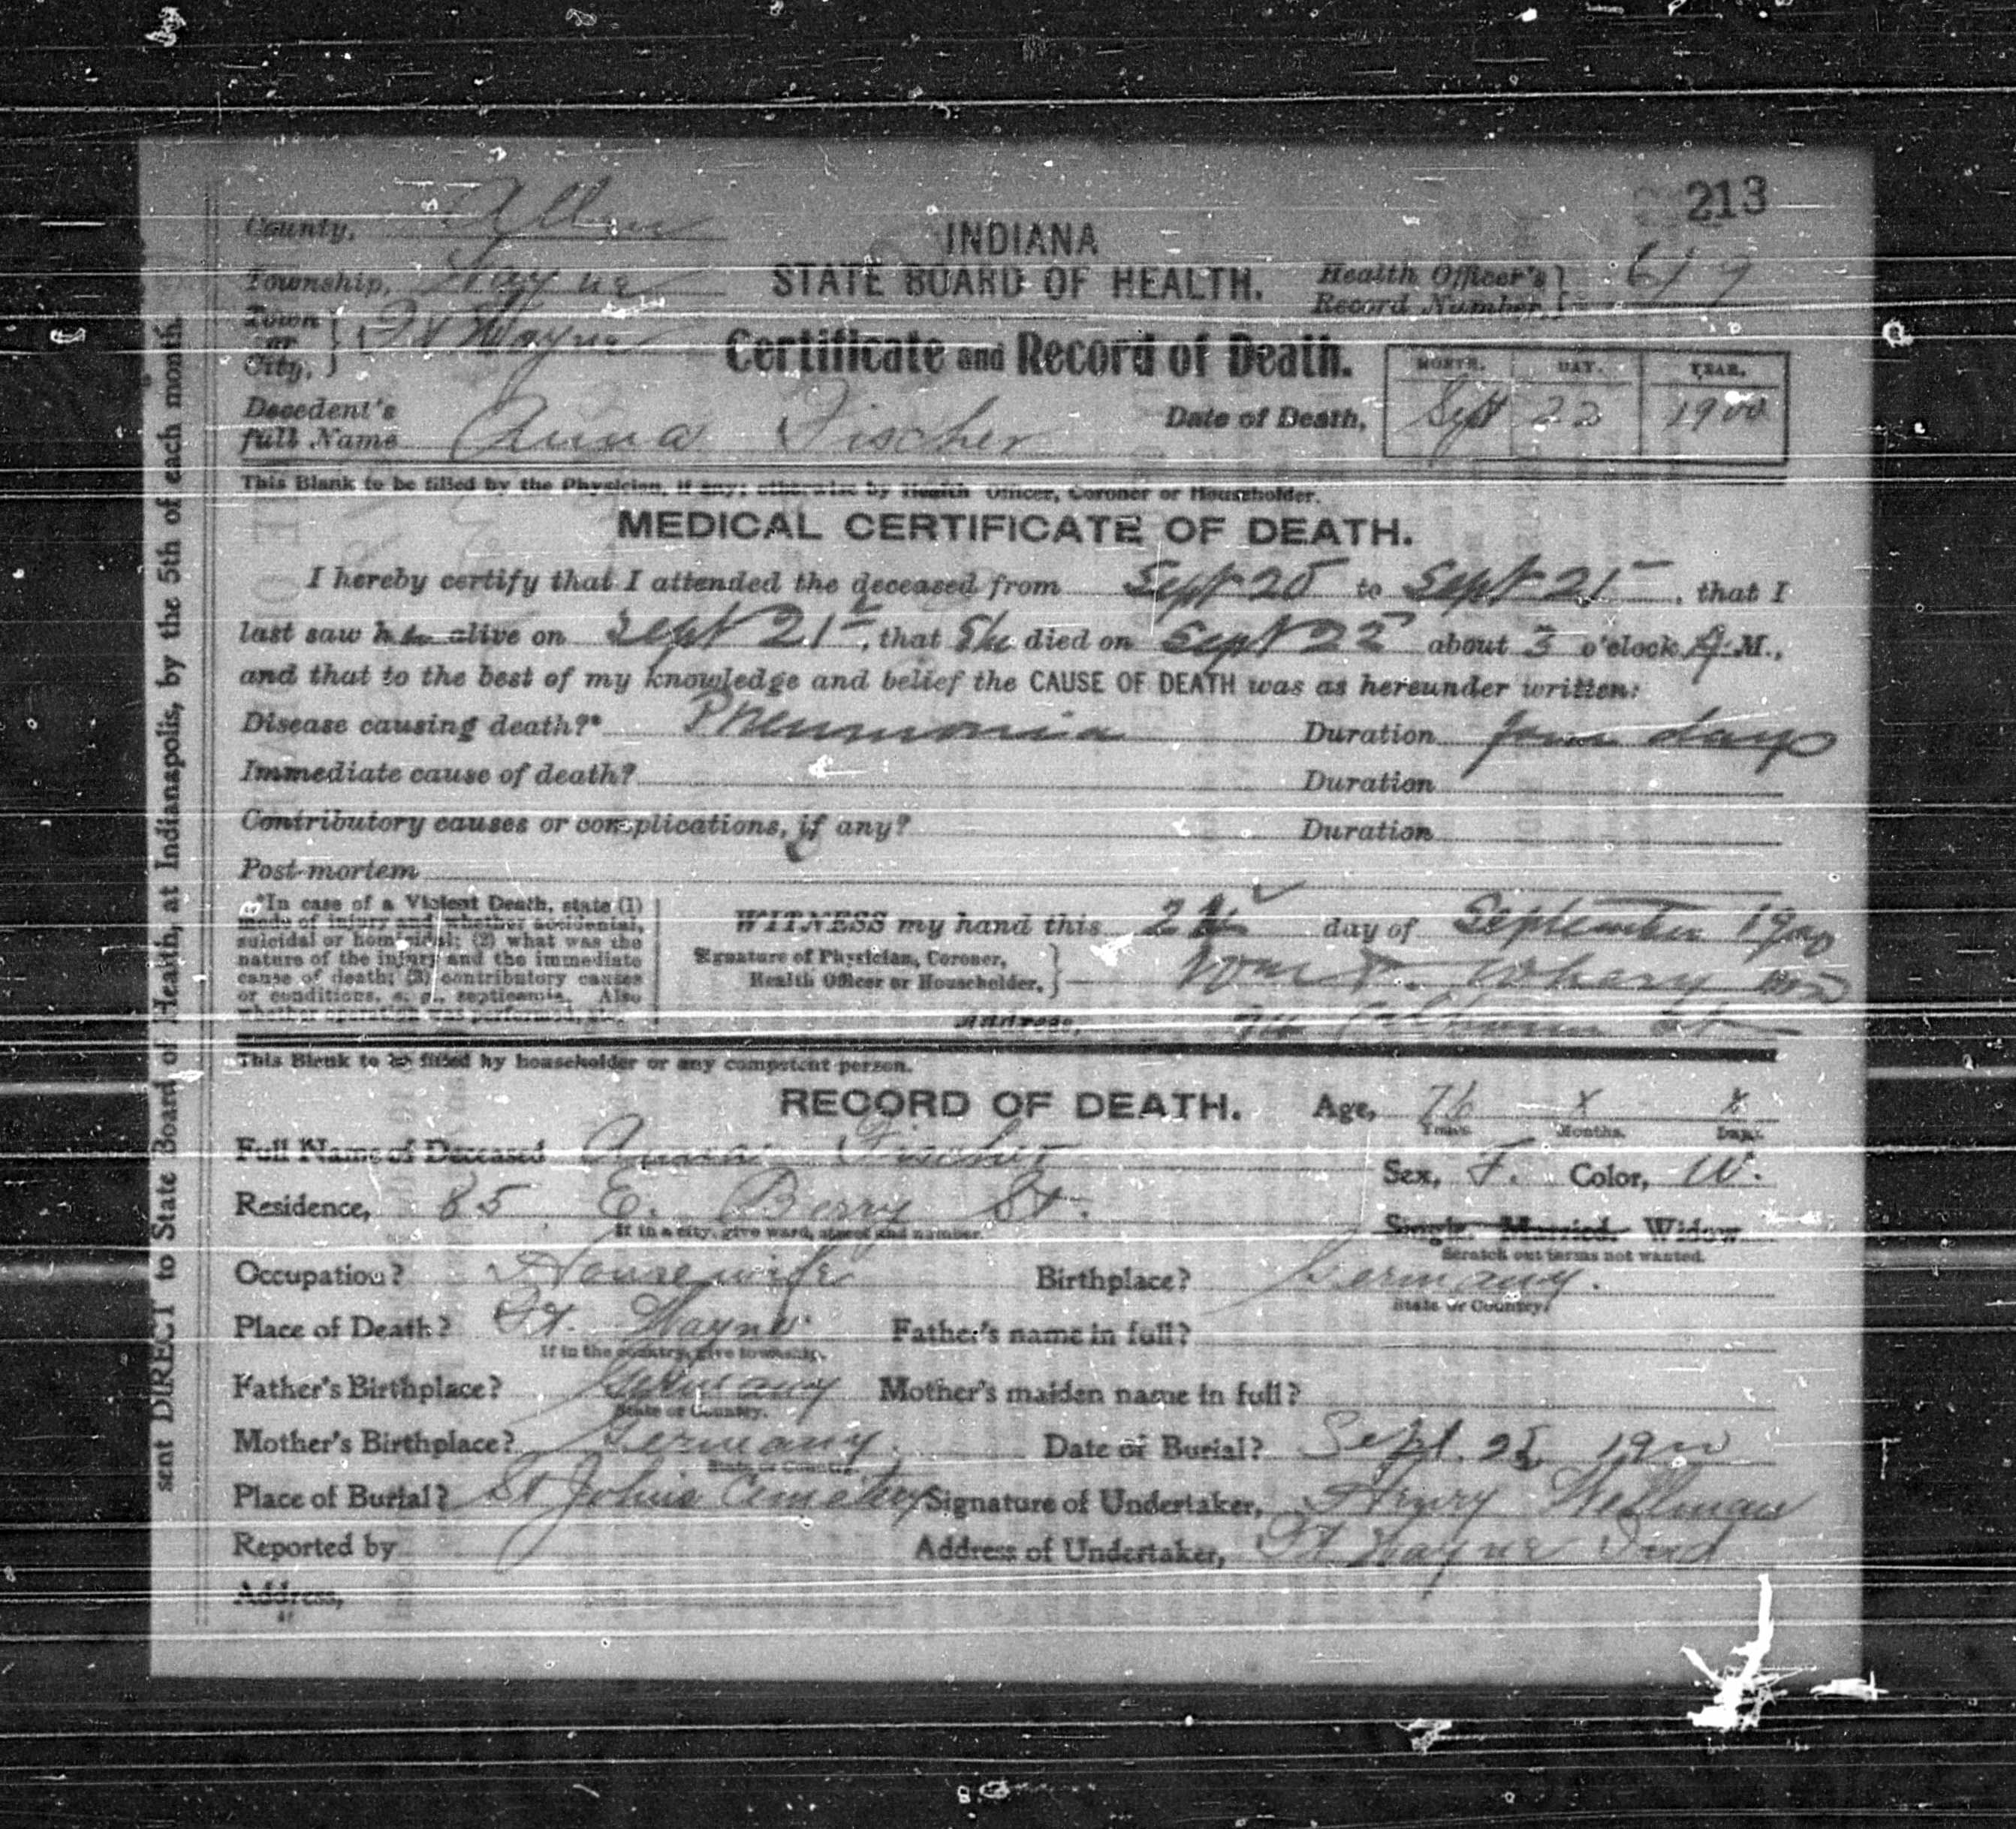 213
County, Allen
INDIANA
Township, Wayne
STATE BOARD OF HEALTH.
Health Officer's Record Number,
Town or City, Ft Wayne
Certificate and Record of Death.
MONTH. DAY. YEAR.
Decedent's full Name Anna Fischer
Date of Death, Sept 22 1900
This Blank to be filled by the Physician, if any; otherwise by Health Officer, Coroner or Householder.
MEDICAL CERTIFICATE OF DEATH.
I hereby certify that I attended the deceased from Sept 20 to Sept 21st, that I
last saw her alive on Sept 21st, that She died on Sept 22 about 3 o'clock A.M.,
and that to the best of my knowledge and belief the CAUSE OF DEATH was as hereunder written:
Disease causing death?* Pneumonia Duration four days
Immediate cause of death? Duration
Contributory causes or complications, if any? Duration
Post-mortem
*In case of a Violent Death, state (1)
mode of injury and whether accidental,
suicidal or homicidal; (2) what was the
nature of the injury and the immediate
cause of death; (3) contributory causes
or conditions, e. g., septicæmia. Also
whether operation was performed, etc.
WITNESS my hand this day of September 1900
Signature of Physician, Coroner,
Health Officer or Householder. Whery MD
Address, Calhoun St
This Blank to be filled by householder or any competent person.
RECORD OF DEATH. Age, 76 x x
Years. Months. Days.
Full Name of Deceased Anna Fischer
Sex, F. Color, W.
Residence, 85 E. Berry St.
If in a city, give ward, street and number.
Single. Married. Widow
Scratch out terms not wanted.
Occupation? Housewife Birthplace? Germany.
State or Country.
Place of Death? Ft. Wayne Father's name in full?
If in the country, give township.
Father's Birthplace? Germany Mother's maiden name in full?
State or Country.
Mother's Birthplace? Germany. Date of Burial? Sept. 25 1900
State or Country.
Place of Burial? St Johns Cemetery Signature of Undertaker, Henry Wellman
Reported by Address of Undertaker, Ft Wayne Ind
Address,
sent DIRECT to State Board of Health, at Indianapolis, by the 5th of each month.